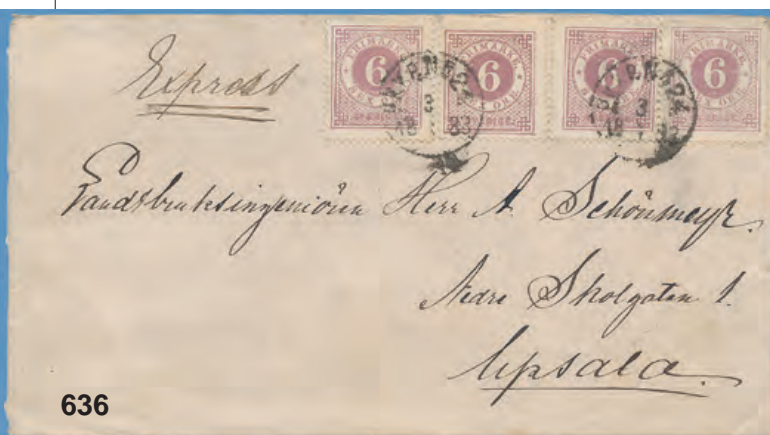 Express
FRIMÄRKE 6 SEX ÖRE
FRIMÄRKE 6 SEX ÖRE
FRIMÄRKE 6 SEX ÖRE
FRIMÄRKE 6 SEX ÖRE
3
18 83
3
18
Landtbruksingeniören Herr A. Schönmeyr.
Nedre Skolgatan 1.
Upsala.
636